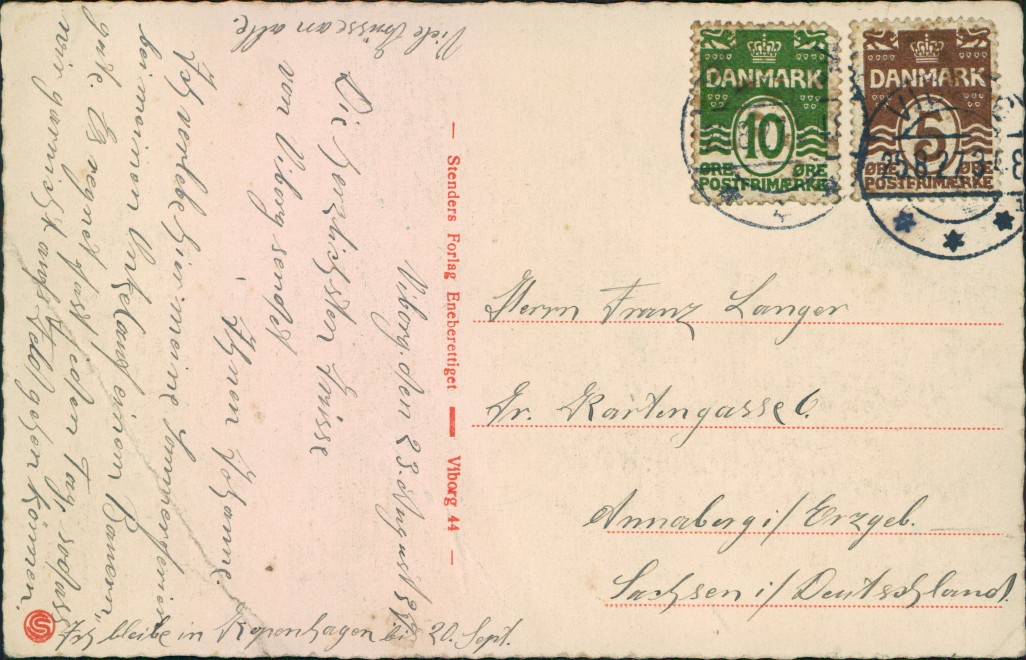 Viborg, den 23. August 27
Die herzlichsten Grüsse
von Viborg sendet
Ihnen Johanne.
Ich verlebe hier meine Sommerferien
bei meinen Onkel auf einem Bauern„
gute. Es regnet fast jeden Tag, sodass
wir garnicht aufs Feld gehen können.
Ich bleibe in Kopenhagen bis 20. Sept.
Viele Grüsse an alle.
— Stenders Forlag Eneberettiget — Viborg 44 —
DANMARK
10
ØRE ØRE
POSTFRIMÆRKE
DANMARK
5
ØRE ØRE
POSTFRIMÆRKE
25.8.27.3
Herrn Franz Langer
Gr. Kartengasse 6.
Annaberg i/ Erzgeb.
Sachsen i/ Deutschland.